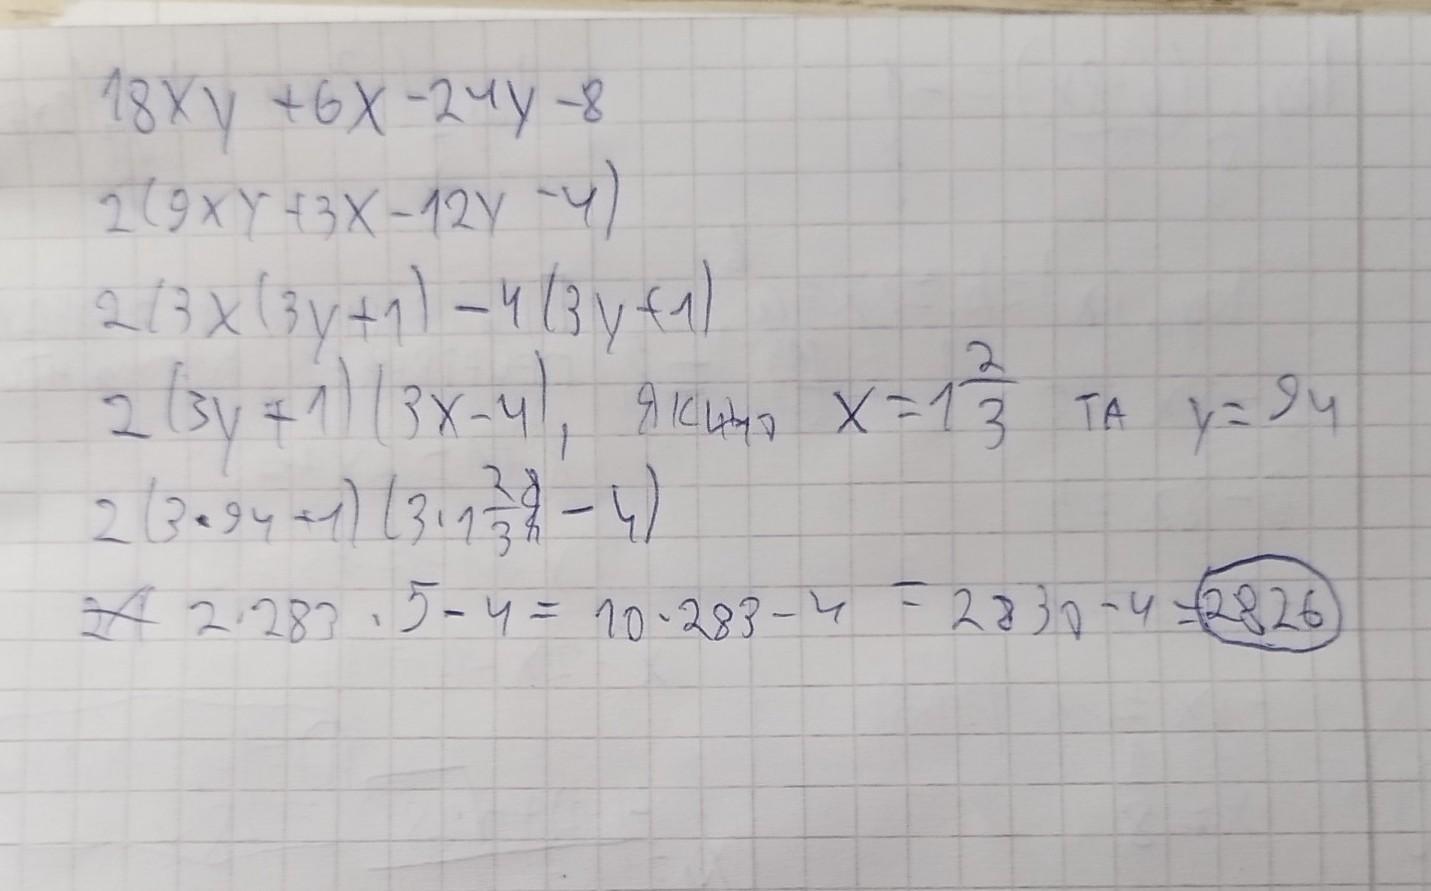 18xy + 6x - 24y - 8
2(9xy + 3x - 12y - 4)
2(3x(3y+1) - 4(3y+1)
2(3y+1)(3x-4), якщо x = 1 2/3 та y = 94
2(3·94+1)(3·1 2/3 - 4)
2·283·5-4 = 10·283-4 = 2830-4 = 2826